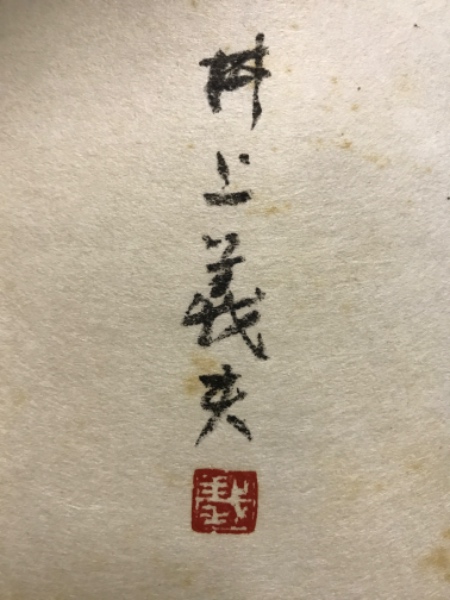 井上義夫